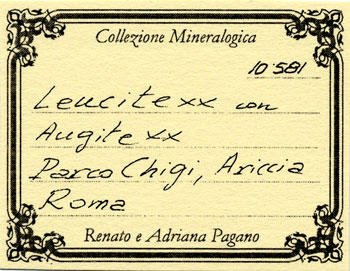 Collezione Mineralogica
10581
Leucite xx con
Augite xx
Parco Chigi, Ariccia
Roma
Renato e Adriana Pagano